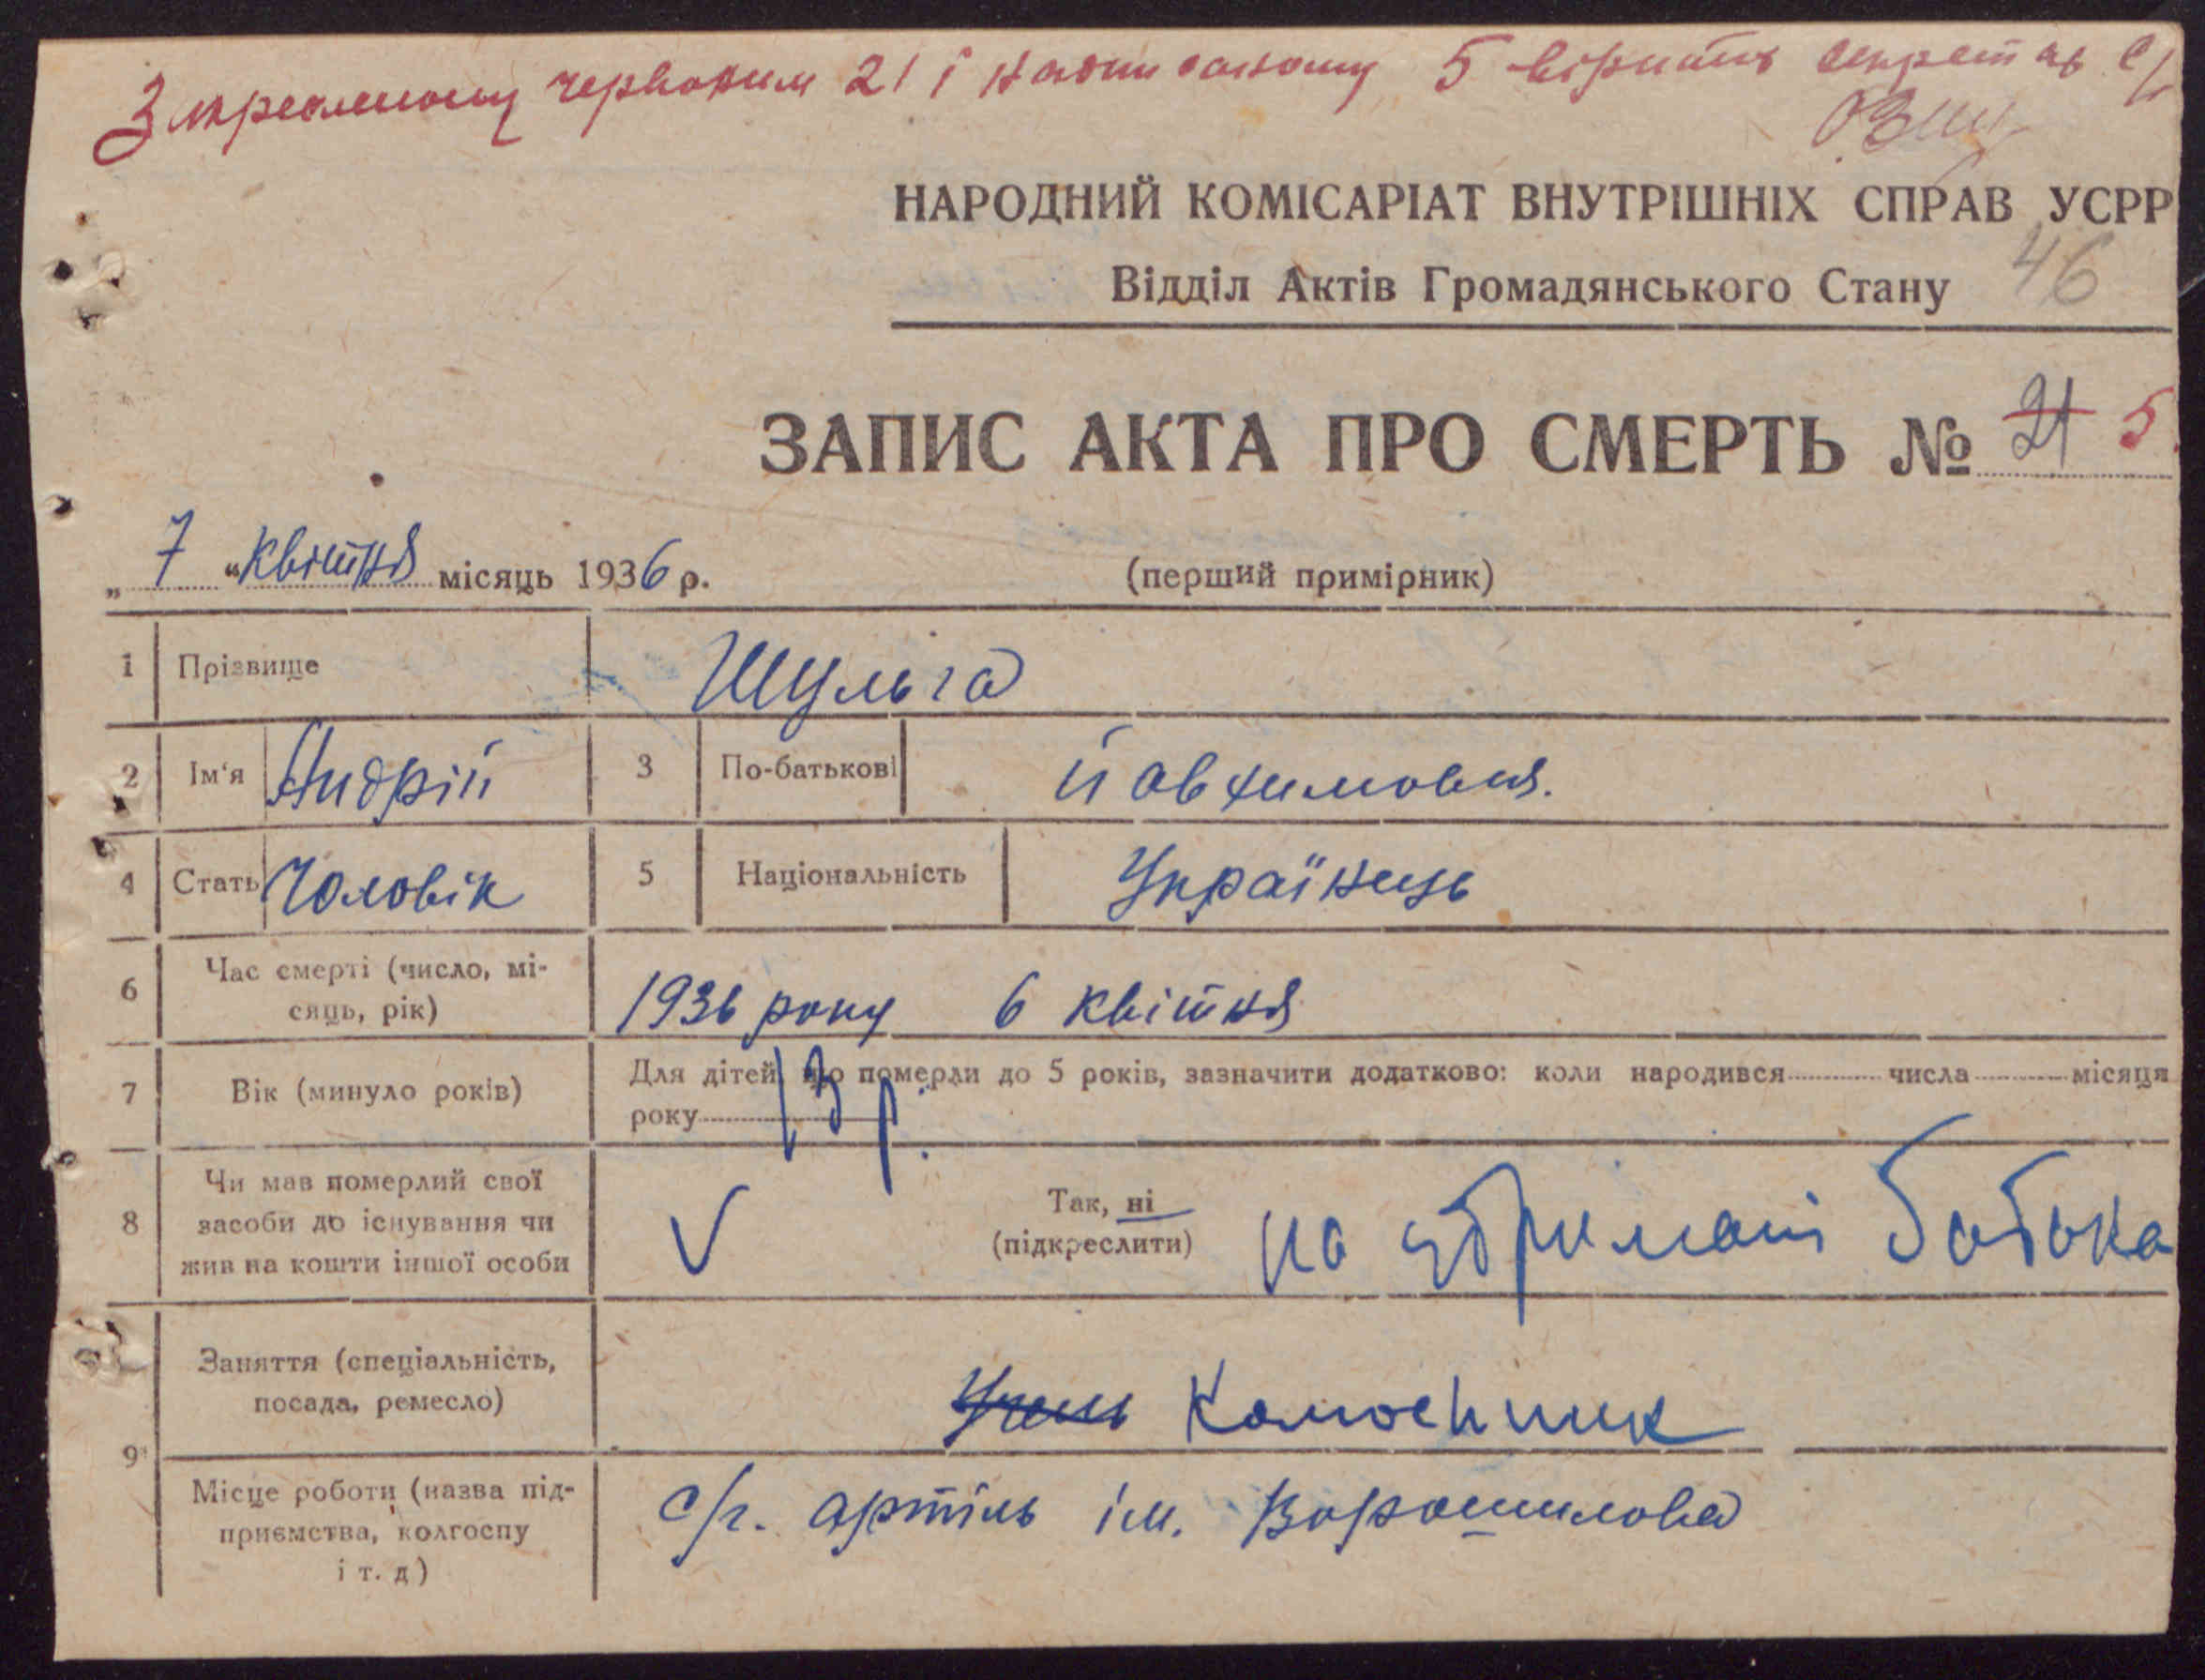 Закресленому червоним 21 і надписаному 5 вірить секретар с/р
НАРОДНИЙ КОМІСАРІАТ ВНУТРІШНІХ СПРАВ УСРР
Відділ Актів Громадянського Стану 46
ЗАПИС АКТА ПРО СМЕРТЬ № 21 5
„ 7 “ квітня місяць 1936 р. (перший примірник)
1 Прізвище Шульга
2 Ім'я Андрій 3 По-батькові
4 Стать Чоловік 5 Національність Українець
6 Час смерті (число, мі-
сяць, рік) 1936 року 6 квітня
7 Вік (минуло років) Для дітей, що померли до 5 років, зазначити додатково: коли народився числа місяця
року 13 р.
8 Чи мав померлий свої
засоби до існування чи
жив на кошти іншої особи
Так, ні
(підкреслити)
на утримані батька
9 Заняття (спеціальність,
посада, ремесло)
Колгоспник
Місце роботи (назва під-
приємства, колгоспу
і т. д)
с/г. артіль ім. Ворошилова